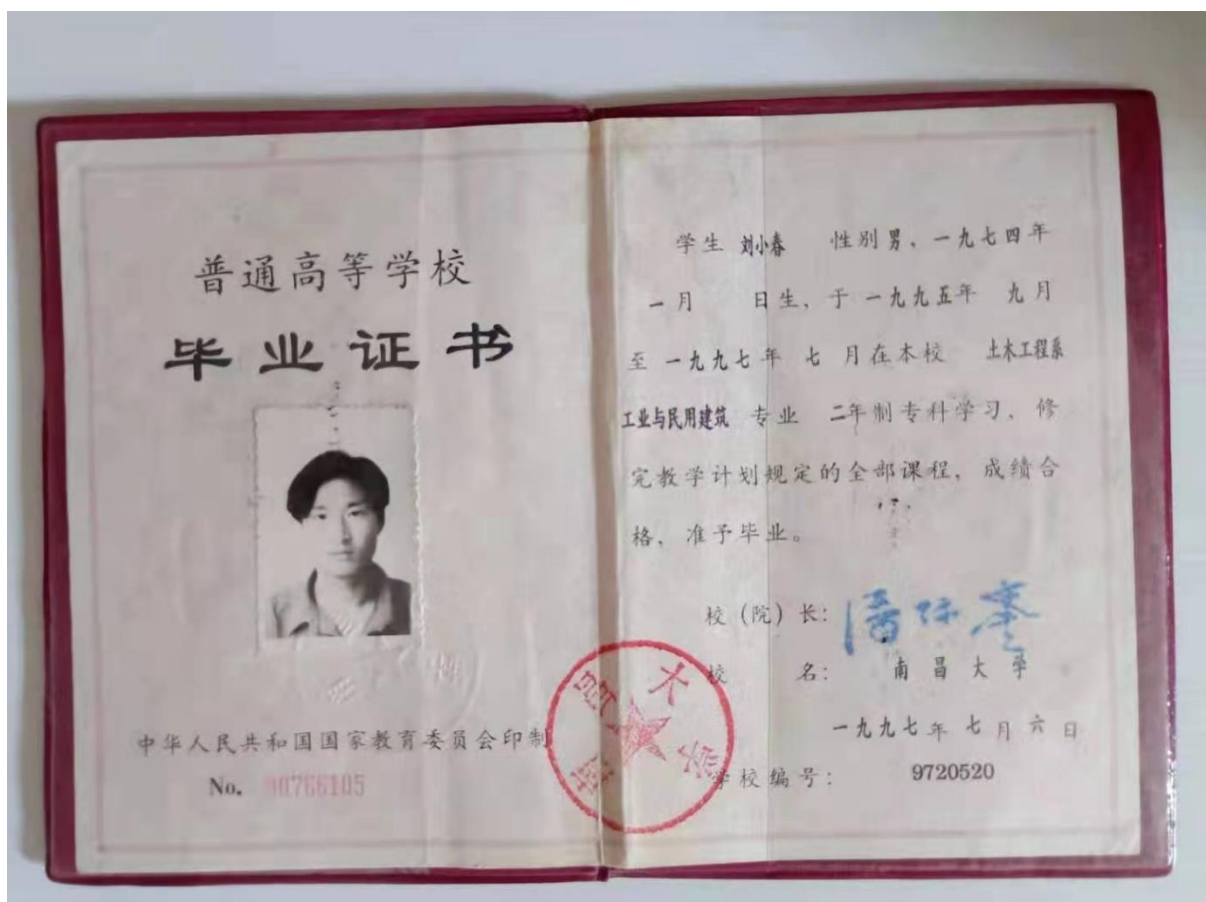 普通高等学校
毕业证书
中华人民共和国国家教育委员会印制
No. 90766105
学生 刘小春 性别男，一九七四年
一月 日生，于一九九五年 九月
至 一九九七年 七 月在本校 土木工程系
工业与民用建筑 专业 二年制专科学习，修
完教学计划规定的全部课程，成绩合
格，准予毕业。
校（院）长：潘际銮
校 名： 南昌大学
一九九七年 七月 六日
学校编号： 9720520
南昌大学